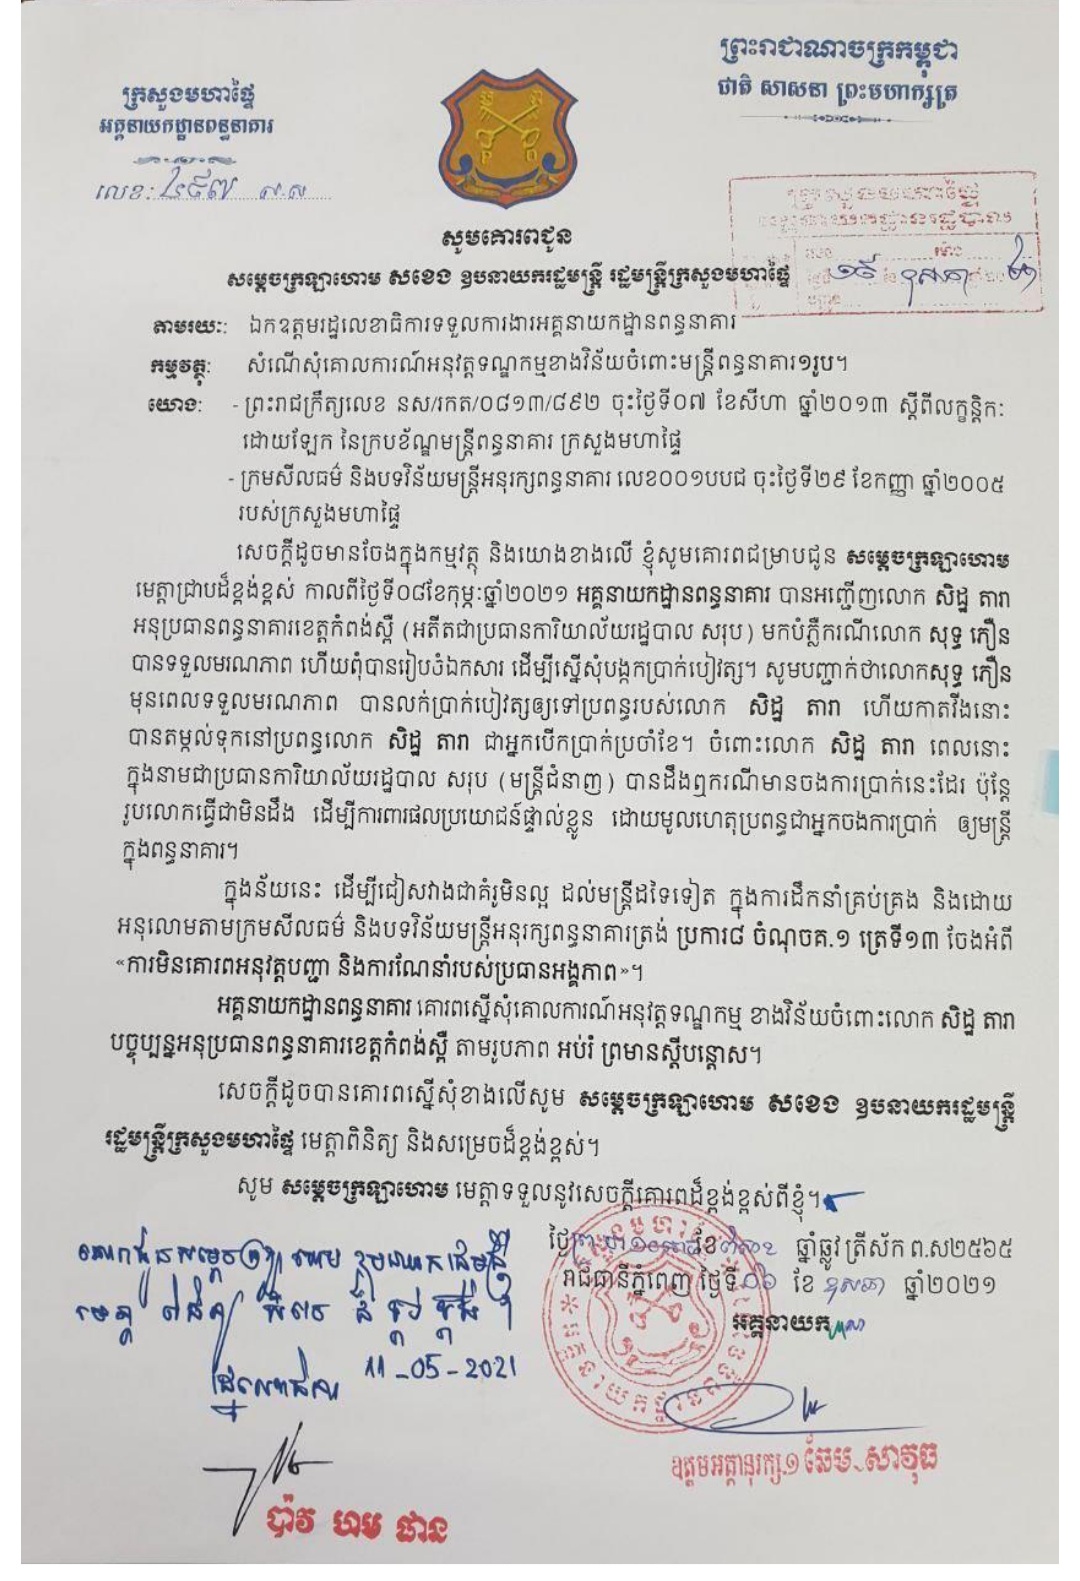 ព្រះរាជាណាចក្រកម្ពុជា
ជាតិ សាសនា ព្រះមហាក្សត្រ
ក្រសួងមហាផ្ទៃ
អគ្គនាយកដ្ឋានពន្ធនាគារ
លេខ:
សូមគោរពជូន
សម្តេចក្រឡាហោម សខេង ឧបនាយករដ្ឋមន្ត្រី រដ្ឋមន្ត្រីក្រសួងមហាផ្ទៃ
តាមរយៈ: ឯកឧត្តមរដ្ឋលេខាធិការទទួលការងារអគ្គនាយកដ្ឋានពន្ធនាគារ
កម្មវត្ថុ: សំណើសុំគោលការណ៍អនុវត្តទណ្ឌកម្មខាងវិន័យចំពោះមន្ត្រីពន្ធនាគារ១រូប។
យោង: - ព្រះរាជក្រឹត្យលេខ នស/រកត/០៨១៣/៨៩២ ចុះថ្ងៃទី០៧ ខែសីហា ឆ្នាំ២០១៣ ស្តីពីលក្ខន្តិកៈ
ដោយឡែក នៃក្របខ័ណ្ឌមន្ត្រីពន្ធនាគារ ក្រសួងមហាផ្ទៃ
- ក្រមសីលធម៌ និងបទវិន័យមន្ត្រីអនុរក្សពន្ធនាគារ លេខ០០១បបជ ចុះថ្ងៃទី២៩ ខែកញ្ញា ឆ្នាំ២០០៥
របស់ក្រសួងមហាផ្ទៃ
សេចក្តីដូចមានចែងក្នុងកម្មវត្ថុ និងយោងខាងលើ ខ្ញុំសូមគោរពជម្រាបជូន សម្តេចក្រឡាហោម
មេត្តាជ្រាបដ៏ខ្ពង់ខ្ពស់ កាលពីថ្ងៃទី០៨ខែកុម្ភៈឆ្នាំ២០២១ អគ្គនាយកដ្ឋានពន្ធនាគារ បានអញ្ជើញលោក សិដ្ឋ តារា
អនុប្រធានពន្ធនាគារខេត្តកំពង់ស្ពឺ (អតីតជាប្រធានការិយាល័យរដ្ឋបាល សរុប) មកបំភ្លឺករណីលោក សុទ្ធ ភឿន
បានទទួលមរណភាព ហើយពុំបានរៀបចំឯកសារ ដើម្បីស្នើសុំបង្កកប្រាក់បៀវត្ស។ សូមបញ្ជាក់ថាលោកសុទ្ធ ភឿន
មុនពេលទទួលមរណភាព បានលក់ប្រាក់បៀវត្សឲ្យទៅប្រពន្ធរបស់លោក សិដ្ឋ តារា ហើយកាតវីងនោះ
បានតម្កល់ទុកនៅប្រពន្ធលោក សិដ្ឋ តារា ជាអ្នកបើកប្រាក់ប្រចាំខែ។ ចំពោះលោក សិដ្ឋ តារា ពេលនោះ
ក្នុងនាមជាប្រធានការិយាល័យរដ្ឋបាល សរុប (មន្ត្រីជំនាញ) បានដឹងឮករណីមានចងការប្រាក់នេះដែរ ប៉ុន្តែ
រូបលោកធ្វើជាមិនដឹង ដើម្បីការពារផលប្រយោជន៍ផ្ទាល់ខ្លួន ដោយមូលហេតុប្រពន្ធជាអ្នកចងការប្រាក់ ឲ្យមន្ត្រី
ក្នុងពន្ធនាគារ។
ក្នុងន័យនេះ ដើម្បីជៀសវាងជាគំរូមិនល្អ ដល់មន្ត្រីដទៃទៀត ក្នុងការដឹកនាំគ្រប់គ្រង និងដោយ
អនុលោមតាមក្រមសីលធម៌ និងបទវិន័យមន្ត្រីអនុរក្សពន្ធនាគារត្រង់ ប្រការ៨ ចំណុចគ.១ ត្រេទី១៣ ចែងអំពី
«ការមិនគោរពអនុវត្តបញ្ជា និងការណែនាំរបស់ប្រធានអង្គភាព»។
អគ្គនាយកដ្ឋានពន្ធនាគារ គោរពស្នើសុំគោលការណ៍អនុវត្តទណ្ឌកម្ម ខាងវិន័យចំពោះលោក សិដ្ឋ តារា
បច្ចុប្បន្នអនុប្រធានពន្ធនាគារខេត្តកំពង់ស្ពឺ តាមរូបភាព អប់រំ ព្រមានស្តីបន្ទោស។
សេចក្តីដូចបានគោរពស្នើសុំខាងលើសូម សម្តេចក្រឡាហោម សខេង ឧបនាយករដ្ឋមន្ត្រី
រដ្ឋមន្ត្រីក្រសួងមហាផ្ទៃ មេត្តាពិនិត្យ និងសម្រេចដ៏ខ្ពង់ខ្ពស់។
សូម សម្តេចក្រឡាហោម មេត្តាទទួលនូវសេចក្តីគោរពដ៏ខ្ពង់ខ្ពស់ពីខ្ញុំ។
ថ្ងៃ ខែ ឆ្នាំឆ្លូវ ត្រីស័ក ព.ស២៥៦៥
រាជធានីភ្នំពេញ ថ្ងៃទី ០៦ ខែ ឧសភា ឆ្នាំ២០២១
អគ្គនាយក
11-05-2021
ឧត្តមអគ្គានុរក្ស.១ ឆែម. សាវុធ
ប៉ាវ ហម ផាន